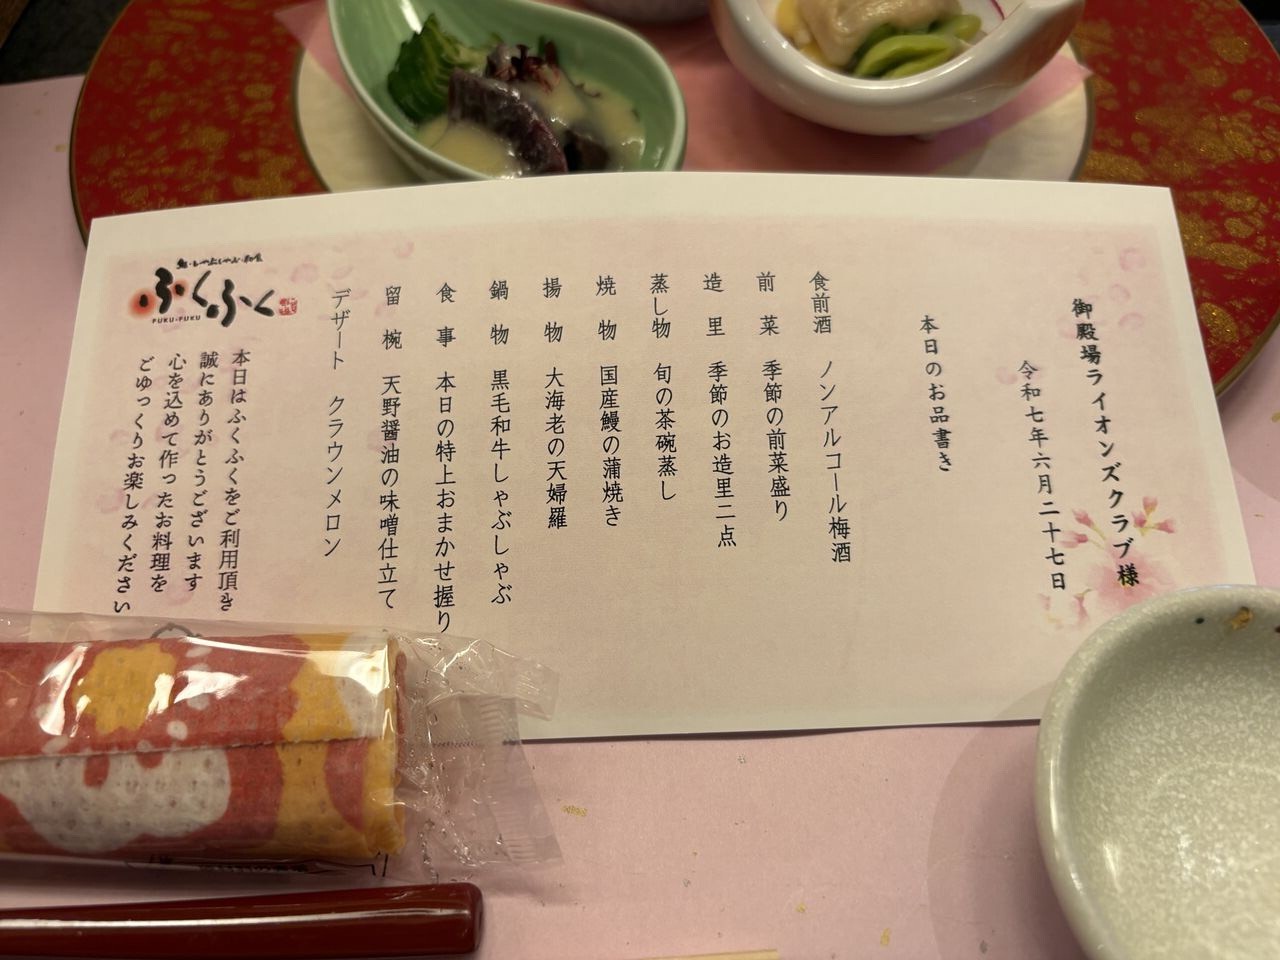 御殿場ライオンズクラブ様
令和七年六月二十七日
本日のお品書き
食前酒　ノンアルコール梅酒
前　菜　季節の前菜盛り
造　里　季節のお造里二点
蒸し物　旬の茶碗蒸し
焼　物　国産鰻の蒲焼き
揚　物　大海老の天婦羅
鍋　物　黒毛和牛しゃぶしゃぶ
食　事　本日の特上おまかせ握り
留　椀　天野醤油の味噌仕立て
デザート　クラウンメロン
鮨・しゃぶしゃぶ・和食
ふくふく
FUKU-FUKU
本日はふくふくをご利用頂き
誠にありがとうございます
心を込めて作ったお料理を
ごゆっくりお楽しみください